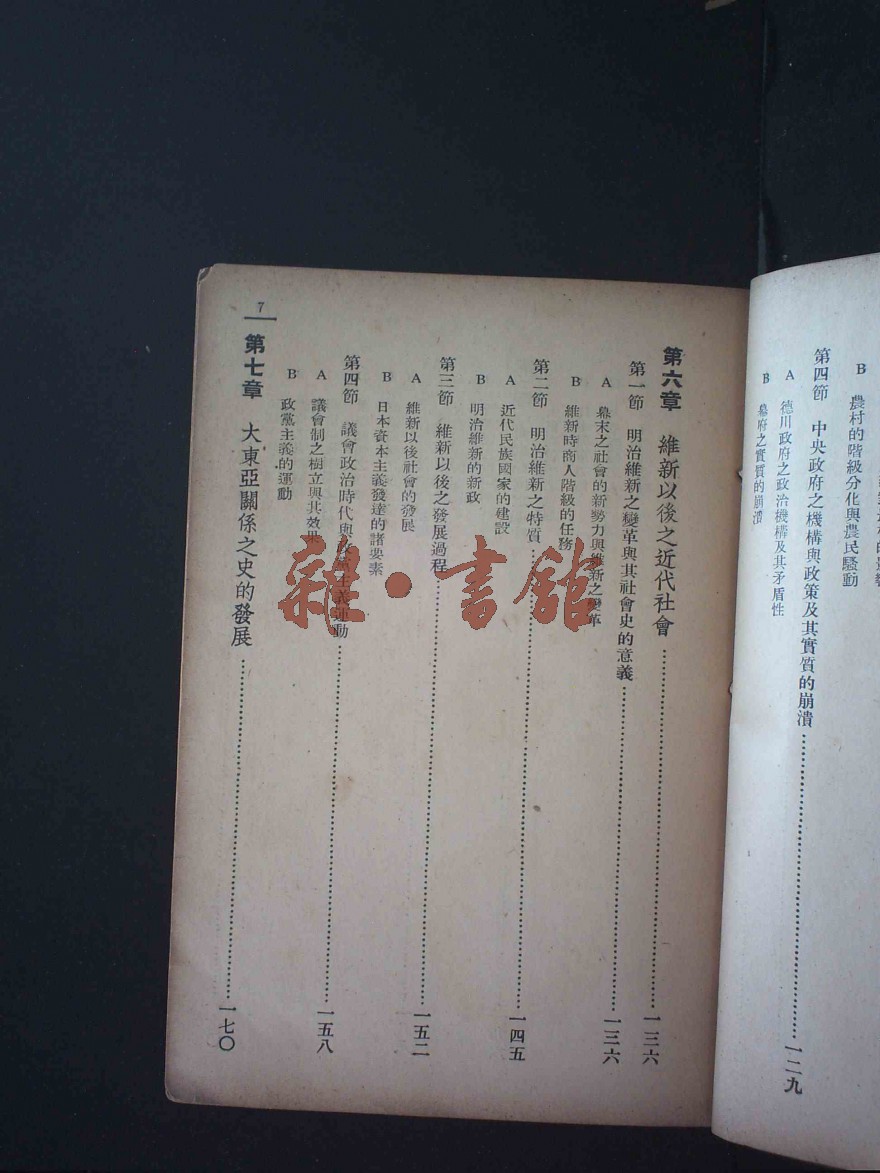 B 農村的階級分化與農民騷動
第四節 中央政府之機構與政策及其實質的崩潰……一二九
A 德川政府之政治機構及其矛盾性
B 幕府之實質的崩潰
第六章 維新以後之近代社會……一三六
第一節 明治維新之變革與其社會史的意義……一三六
A 幕末之社會的新勢力與維新之變革
B 維新時商人階級的任務
第二節 明治維新之特質……一四五
A 近代民族國家的建設
B 明治維新的新政
第三節 維新以後之發展過程……一五二
A 維新以後社會的發展
B 日本資本主義發達的諸要素
第四節 議會政治時代與政黨主義運動……一五八
A 議會制之樹立與其效果
B 政黨主義的運動
第七章 大東亞關係之史的發展……一七〇
7
雜·書館